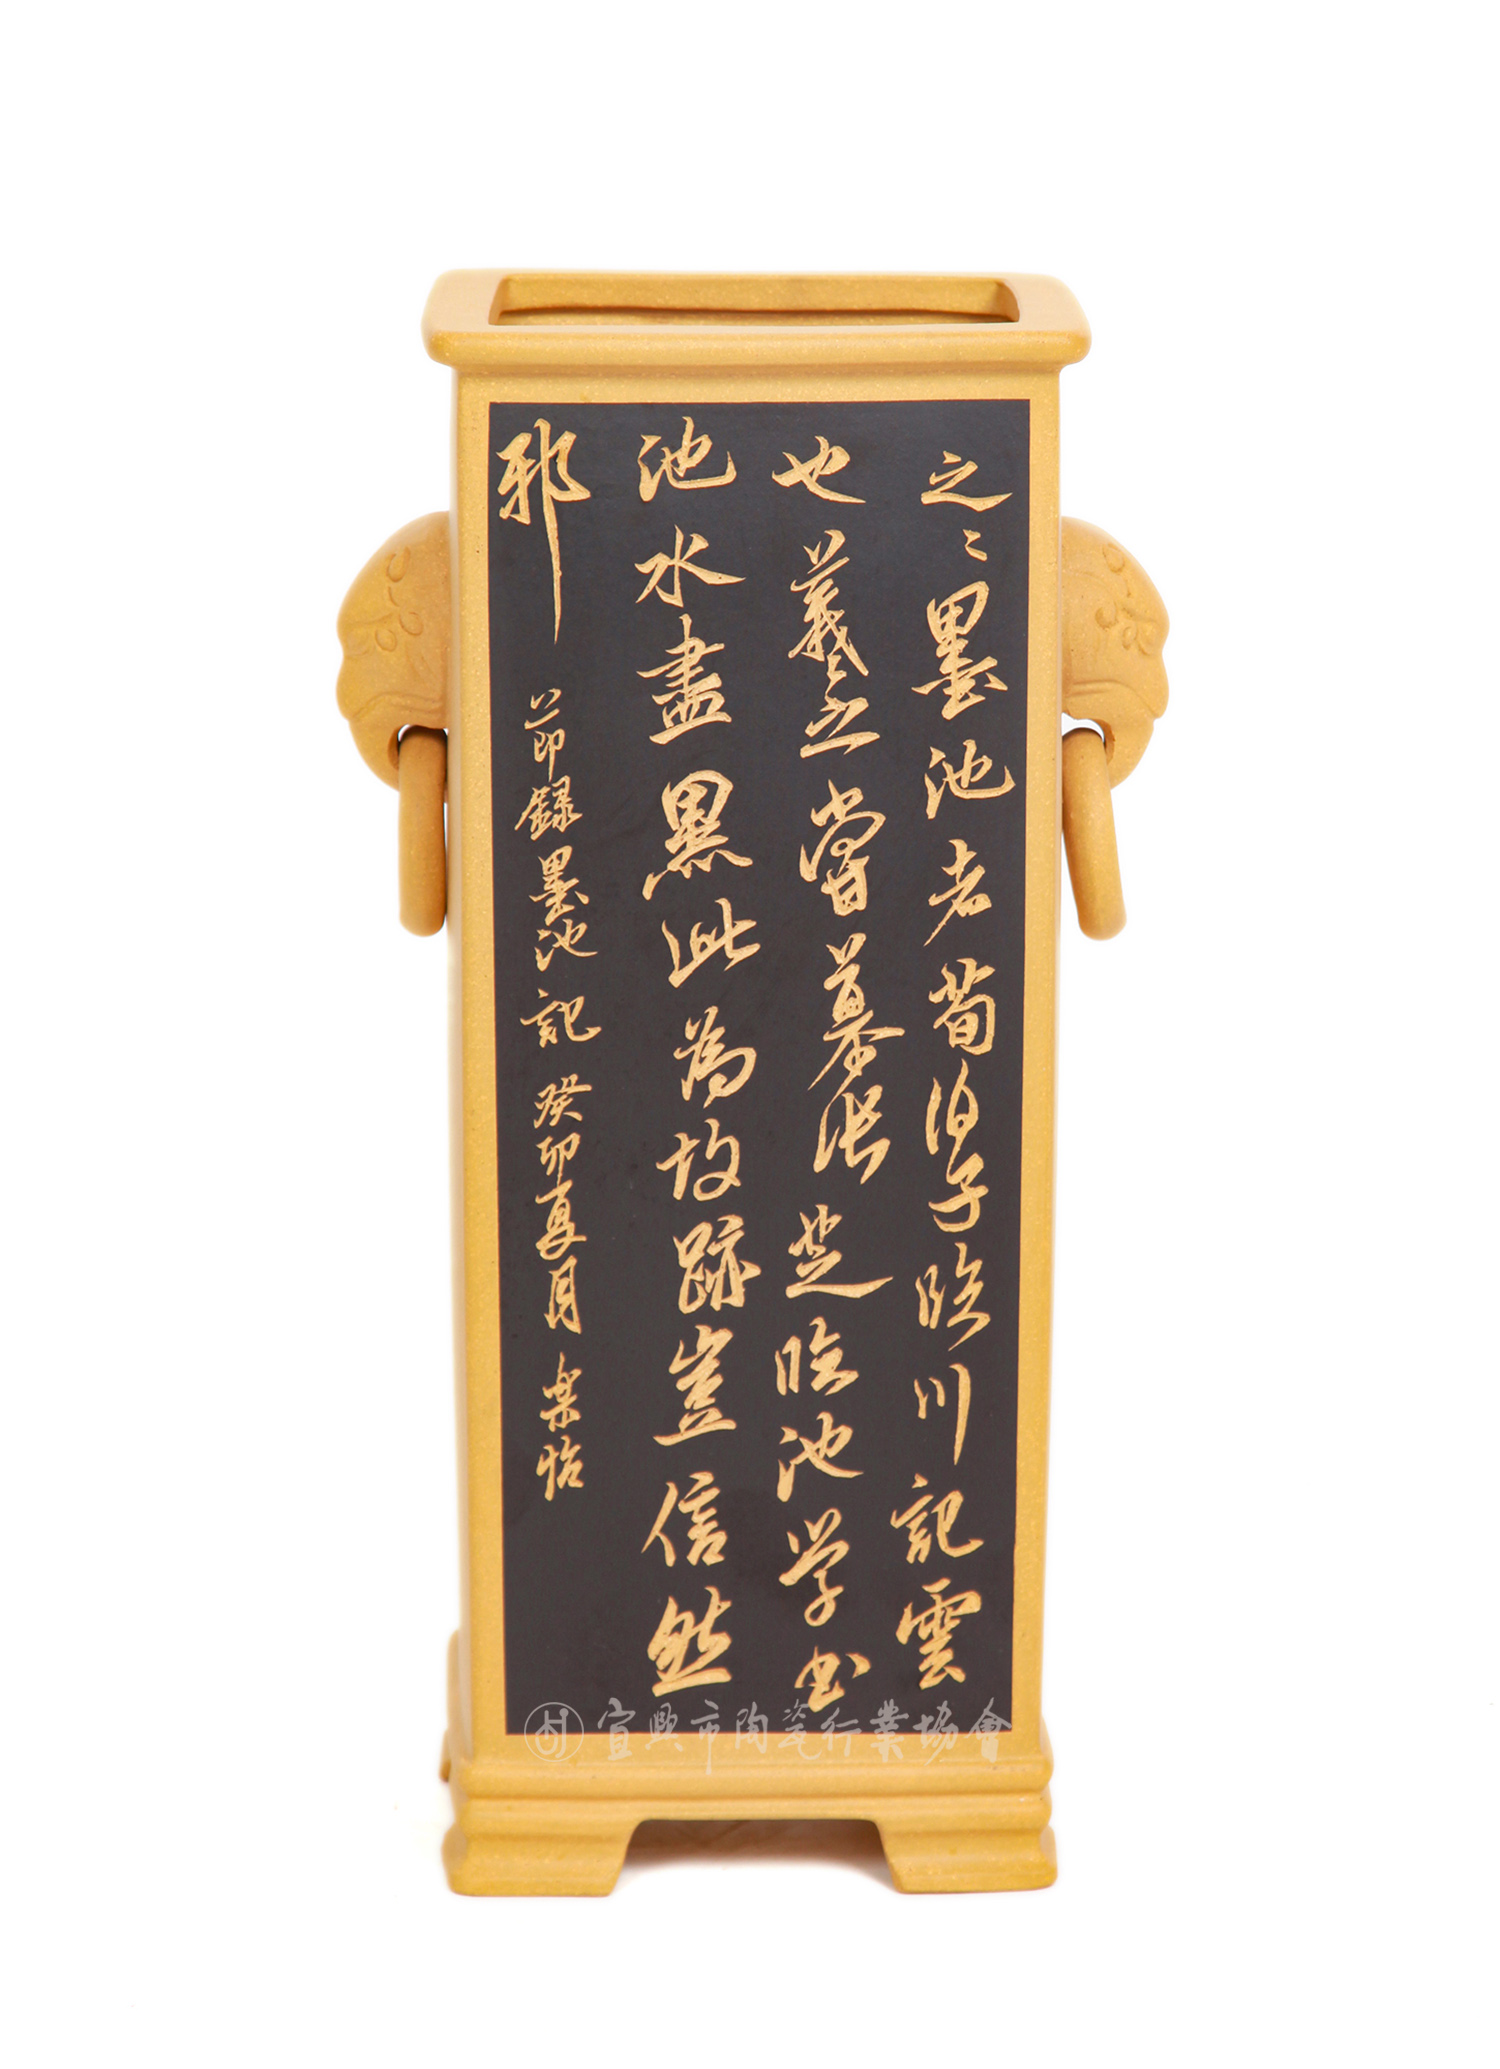 之〻墨池者荀伯子臨川記雲
也羲之嘗慕張芝臨池學书
池水盡黑此為故跡豈信然
邪
節録墨池記癸卯夏月樂怡
宜興市陶瓷行業協會